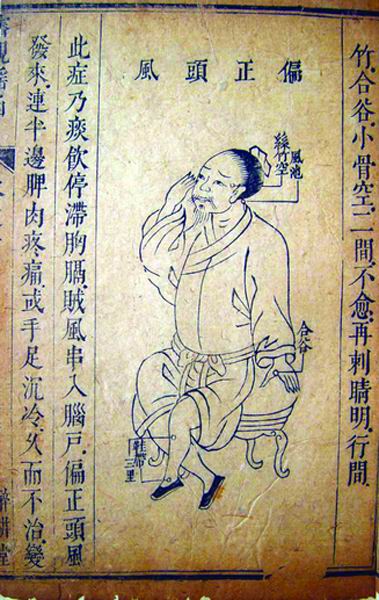 竹.合谷小骨空.二間.不愈.再刺睛明.行間.
偏正頭風
風池
絲竹空
合谷
鞋帶
三里
此症乃痰飲停滯胸膈.賊風串入腦戶.偏正頭風
發來.連半邊脾肉疼痛.或手足沉冷.久而不治.變